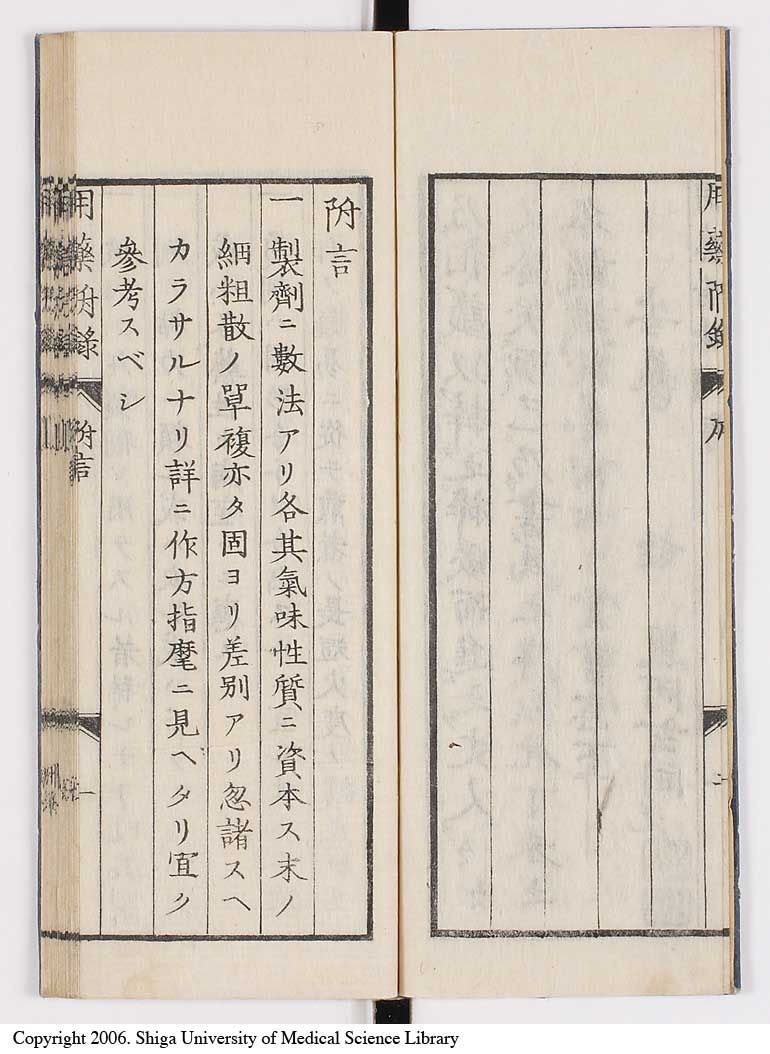 附言
一製劑ニ數法アリ各其氣味性質ニ資本ス末ノ
細粗散ノ單複亦タ固ヨリ差別アリ忽諸スヘ
カラサルナリ詳ニ作方指麾ニ見ヘタリ宜ク
參考スベシ
用藥附錄
附言
一
用藥附錄
二
Copyright 2006. Shiga University of Medical Science Library